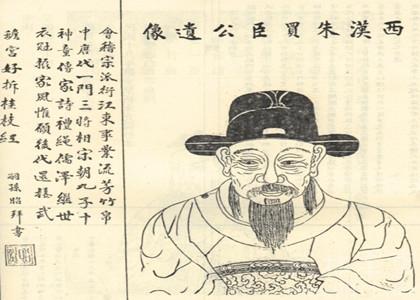 西漢朱買臣公遺像
會稽宗派衍江東事業流芳竹帛
中唐代一門三將相宋朝九子十
神童傳家詩禮綿儒澤繼世
衣冠振家風惟願後代還接武
蟾宮好折桂枝紅
裔孫昭拜書